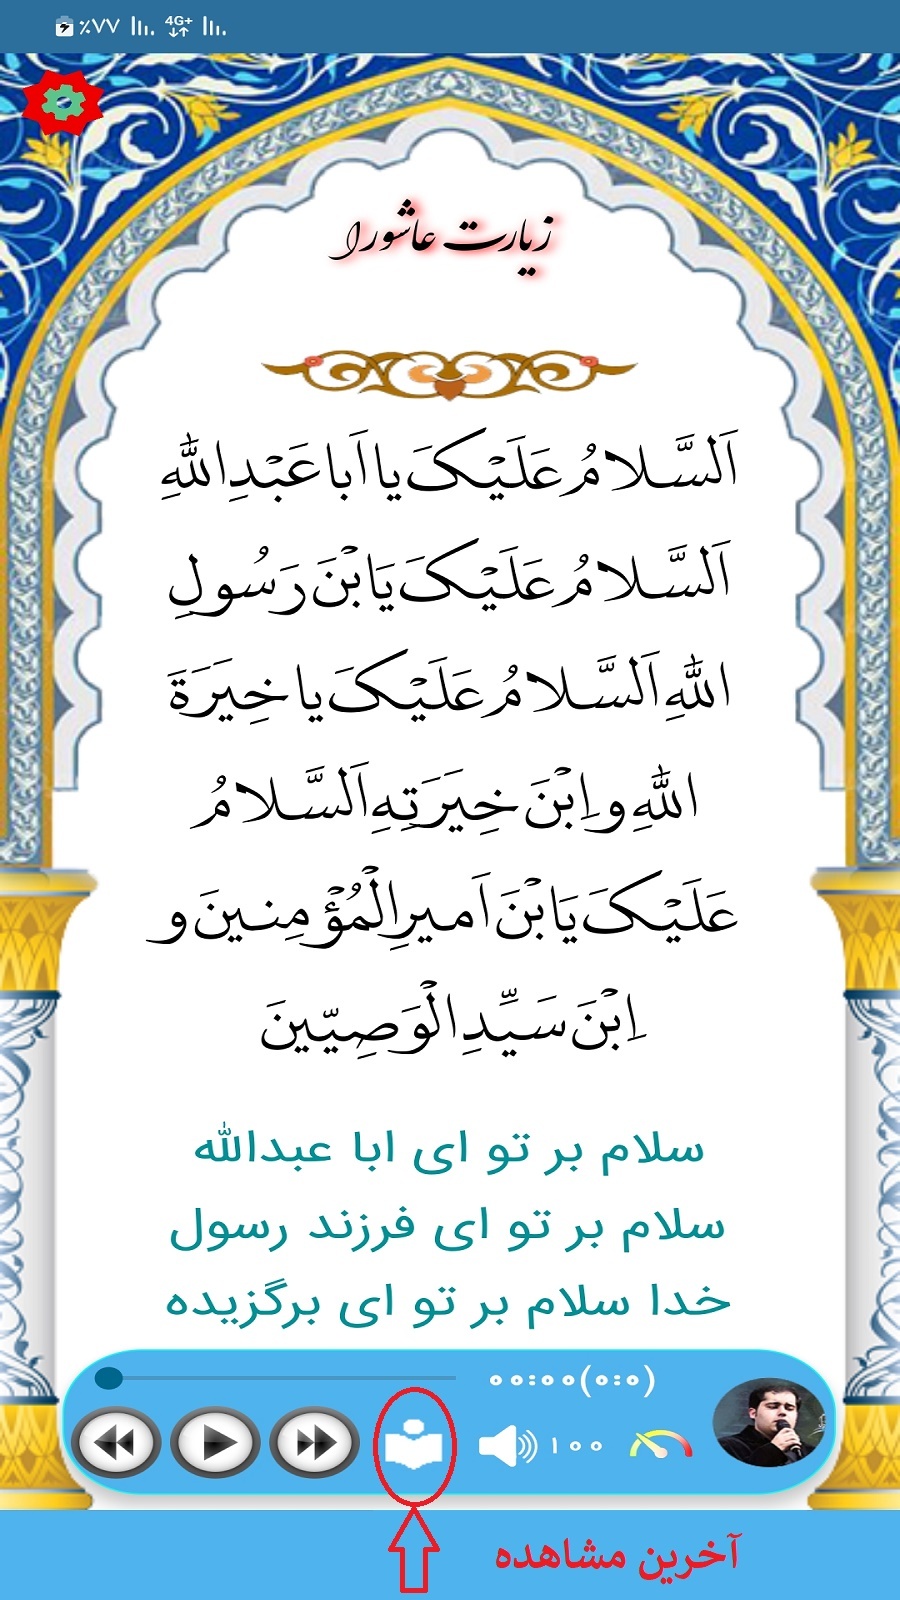 ٪۷۷ 4G+
زیارت عاشورا
اَلسَّلامُ عَلَیْکَ یا اَبا عَبْدِاللهِ
اَلسَّلامُ عَلَیْکَ یَابْنَ رَسُولِ
اللهِ اَلسَّلامُ عَلَیْکَ یا خِیَرَةَ
اللهِ و اِبْنَ خِیَرَتِهِ اَلسَّلامُ
عَلَیْکَ یَابْنَ اَمیرِالْمُؤْمِنینَ و
اِبْنَ سَیِّدِ الْوَصِیّینَ
سلام بر تو ای ابا عبدالله
سلام بر تو ای فرزند رسول
خدا سلام بر تو ای برگزیده
۰۰:۰۰(۰:۰)
۱۰۰
آخرین مشاهده